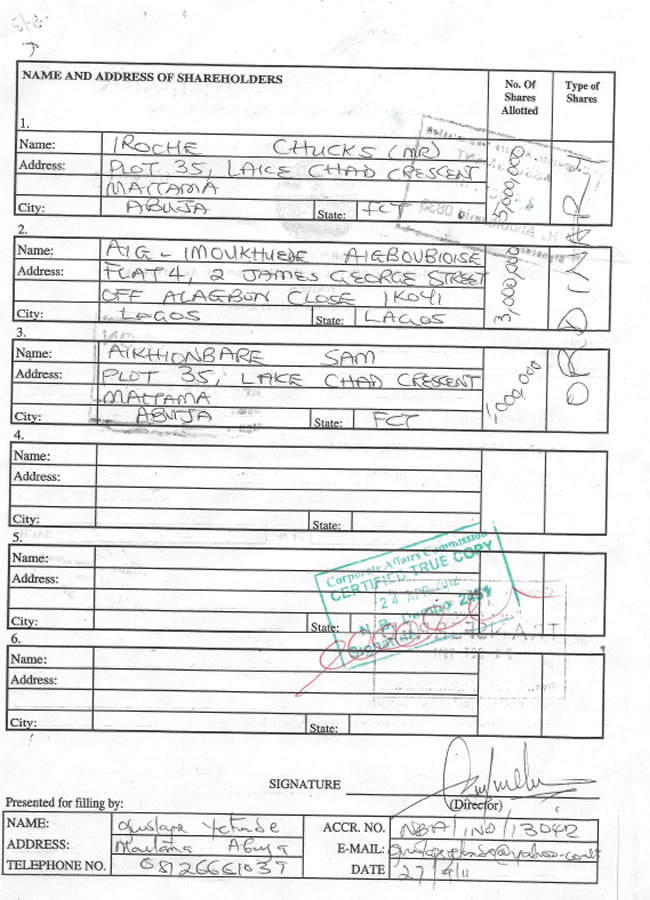 NAME AND ADDRESS OF SHAREHOLDERS
No. Of Shares Allotted
Type of Shares
1.
Name: IROCHE CHUCKS (MR)
Address: PLOT 35, LAKE CHAD CRESCENT
MAITAMA
City: ABUJA State: FCT
5,000,000
ORDINARY
2.
Name: AIG-IMOUKHUEDE AIGBOUBIOISE
Address: FLAT 4, 2 JAMES GEORGE STREET
OFF ALAGBON CLOSE IKOYI
City: LAGOS State: LAGOS
3,000,000
3.
Name: AIKHIONBARE SAM
Address: PLOT 35, LAKE CHAD CRESCENT
MAITAMA
City: ABUJA State: FCT
1,000,000
4.
Name:
Address:
City: State:
5.
Name:
Address:
City: State:
Corporate Affairs Commission
CERTIFIED TRUE COPY
24 APR 2012
6.
Name:
Address:
City: State:
SIGNATURE
(Director)
Presented for filling by:
NAME:
ADDRESS: Maitama Abuja
TELEPHONE NO. 08126661037
ACCR. NO. NBA/IND/13042
E-MAIL:
DATE 27/4/11